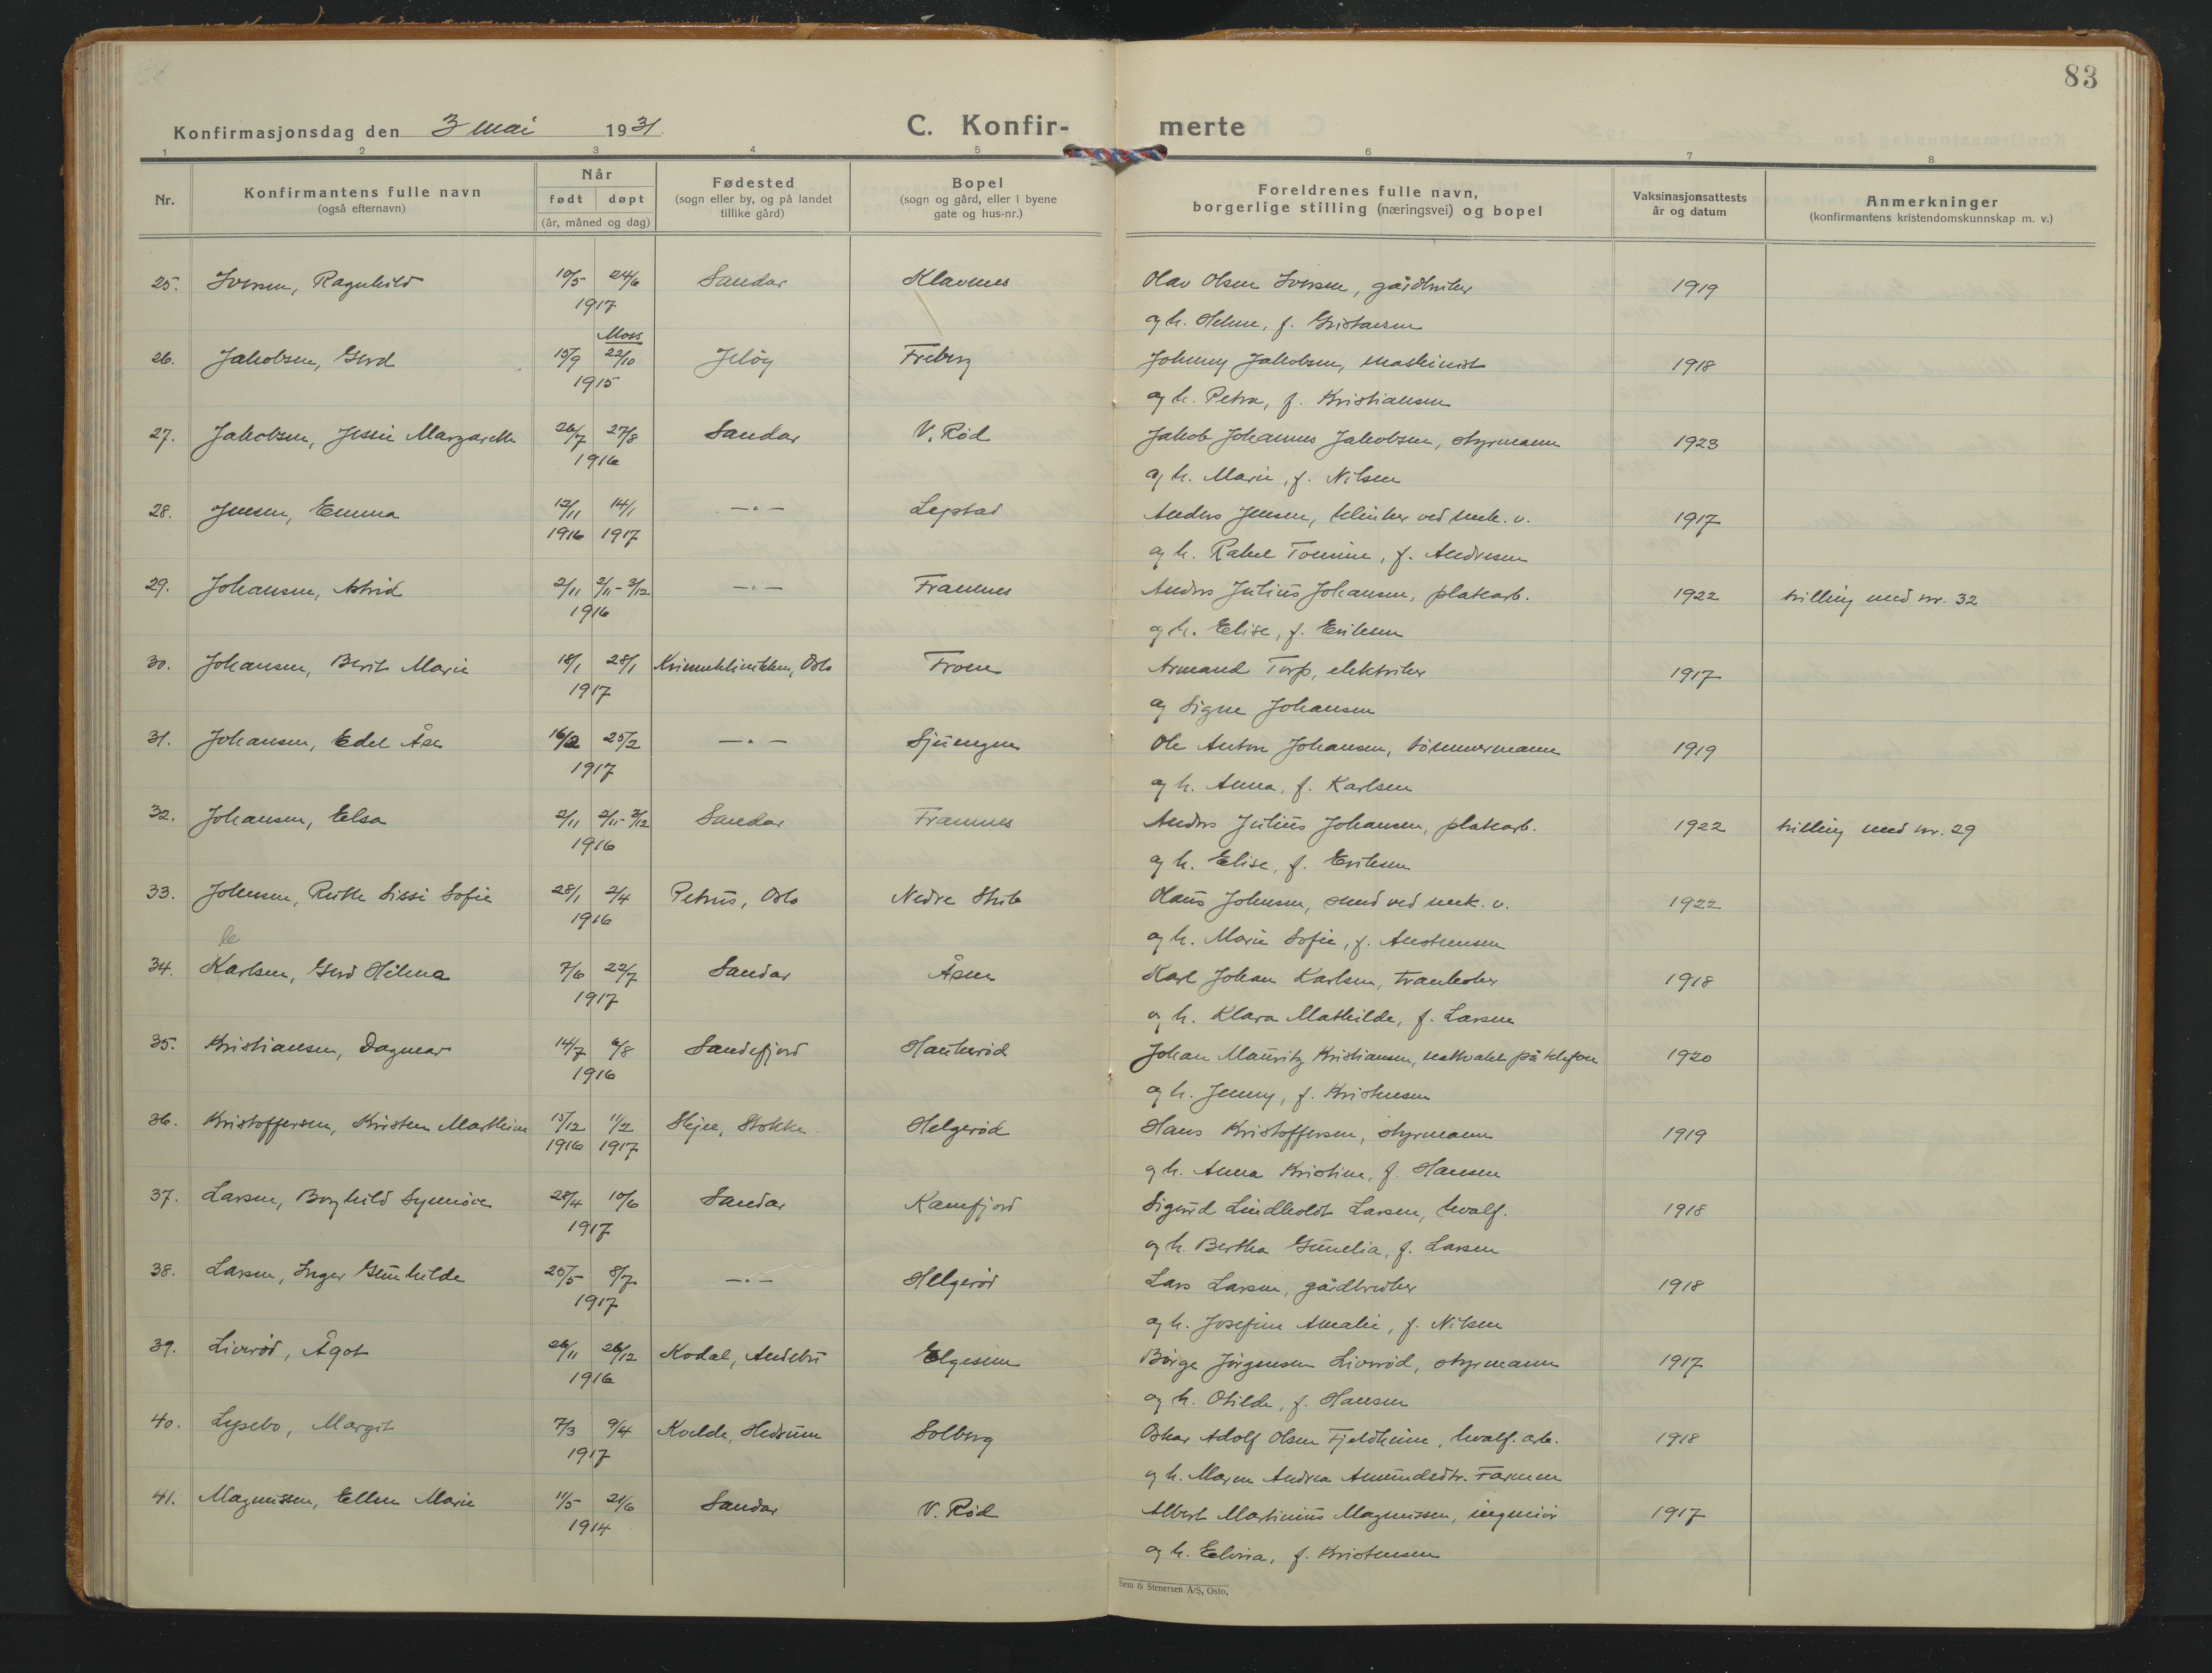 83
Konfirmasjonsdag den 3 mai 1931.
C. Konfir- merte
1 2 3 4 5 6 7 8
Nr.
Konfirmantens fulle navn
(også efternavn)
Når
født døpt
(år, måned og dag)
Fødested
(sogn eller by, og på landet
tillike gård)
Bopel
(sogn og gård, eller i byene
gate og hus-nr.)
Foreldrenes fulle navn,
borgerlige stilling (næringsvei) og bopel
Vaksinasjonsattests
år og datum
Anmerkninger
(konfirmantens kristendomskunnskap m. v.)
25. Iversen, Ragnhild 10/5 24/6 Sandar Klavnes Olav Olsen Iversen, gårdbruker 1919
1917 og h. Helene, f. Gustavsen
Moss
26. Jakobsen, Gerd 15/9 22/10 Jeløy Freberg Johnny Jakobsen, maskinist 1918
1915 og h. Petra, f. Kristiansen
27. Jakobsen, Jessie Margarethe 26/7 27/8 Sandar V. Rød Jakob Johannes Jakobsen, styrmann 1923
1916 og h. Marie, f. Nilsen
28. Jensen, Emma 12/11 14/1 —„— Lepstad Anders Jensen, klinker ved mek. v. 1917
1916 1917 og h. Rakel Tomine, f. Andresen
29. Johansen, Astrid 2/11 2/11-3/12 —„— Framnes Anders Julius Johansen, platearb. 1922 trilling med nr. 32
1916 og h. Elise, f. Eriksen
30. Johansen, Berit Marie 18/1 28/1 Kvinneklinikken, Oslo Froen Armand Torp, elektriker 1917
1917 og Signe Johansen
31. Johansen, Edel Åse 16/2 25/2 —„— Sjuengen Ole Anton Johansen, tømmermann 1919
1917 og h. Anna, f. Karlsen
32. Johansen, Elsa 2/11 2/11-3/12 Sandar Framnes Anders Julius Johansen, platearb. 1922 trilling med nr. 29
1916 og h. Elise, f. Eriksen
33. Johnsen, Ruth Sissi Sofie 28/1 2/4 Petrus, Oslo Nedre Stub Olaus Johnsen, smed ved mek. v. 1922
1916 og h. Marie Sofie, f. Anstensen
34. Karlsen, Gerd Hilma 7/6 22/7 Sandar Åsen Karl Johan Karlsen, trankoker 1918
1917 og h. Klara Mathilde, f. Larsen
35. Kristiansen, Dagmar 14/7 6/8 Sandefjord Haukerød Johan Mauritz Kristiansen, nattvakt på telefon 1920
1916 og h. Jenny, f. Kristensen
36. Kristoffersen, Kirsten Marthine 15/12 11/2 Skjee, Stokke Helgerød Hans Kristoffersen, styrmann 1919
1916 1917 og h. Anna Kristine, f. Hansen
37. Larsen, Borghild Synnøve 28/4 10/6 Sandar Kamfjord Sigurd Lindholdt Larsen, hvalf. 1918
1917 og h. Bertha Gunelia, f. Larsen
38. Larsen, Inger Gunhilde 25/5 8/7 —„— Helgerød Lars Larsen, gårdbruker 1918
1917 og h. Josefine Amalie, f. Nilsen
39. Liverød, Ågot 26/11 26/12 Kodal, Andebu Elgesem Børge Jørgensen Liverød, styrmann 1917
1916 og h. Otilde, f. Hansen
40. Lysebo, Margit 7/3 9/4 Kvelde, Hedrum Solberg Oskar Adolf Olsen Fjeldheim, hvalf. arb. 1918
1917 og h. Maren Andrea Amundsdtr. Farmen
41. Magnussen, Ellen Marie 11/5 21/6 Sandar V. Rød Albert Martinius Magnussen, ingeniør 1917
1914 og h. Elvira, f. Kristensen
Sem & Stenersen A/S, Oslo.